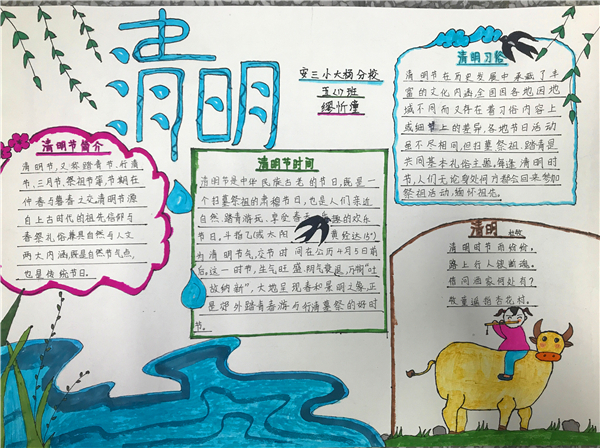 清明
安三小大杨分校
五(1)班
缪忻潼
清明节简介
清明节,又称踏青节、行清
节、三月节、祭祖节等,节期在
仲春与暮春之交。清明节源
自上古时代的祖先信仰与
春祭礼俗,兼具自然与人文
两大内涵,既是自然节气点,
也是传统节日。
清明节时间
清明节是中华民族古老的节日,既是一
个扫墓祭祖的肃穆节日,也是人们亲近
自然、踏青游玩、享受春天 趣的欢乐
节日。斗指乙(或太阳 黄经达15°)
为清明节气,交节时 间在公历4月5日前
后。这一时节,生气旺盛、阴气衰退,万物"吐
故纳新",大地呈现春和景明之象,正
是郊外踏青春游与行清墓祭的好时
节。
清明习俗
清明节在历史发展中承载了丰
富的文化内涵,全国因各地因地
域不同而又存在着习俗内容上
或细节上的差异,各地节日活动
虽不尽相同,但扫墓祭祖、踏青是
共同基本礼俗主题,每逢清明时
节,人们无论身处何方都会回来参加
祭祖活动,缅怀祖先。
清明 杜牧
清明时节雨纷纷,
路上行人欲断魂。
借问酒家何处有?
牧童遥指杏花村。